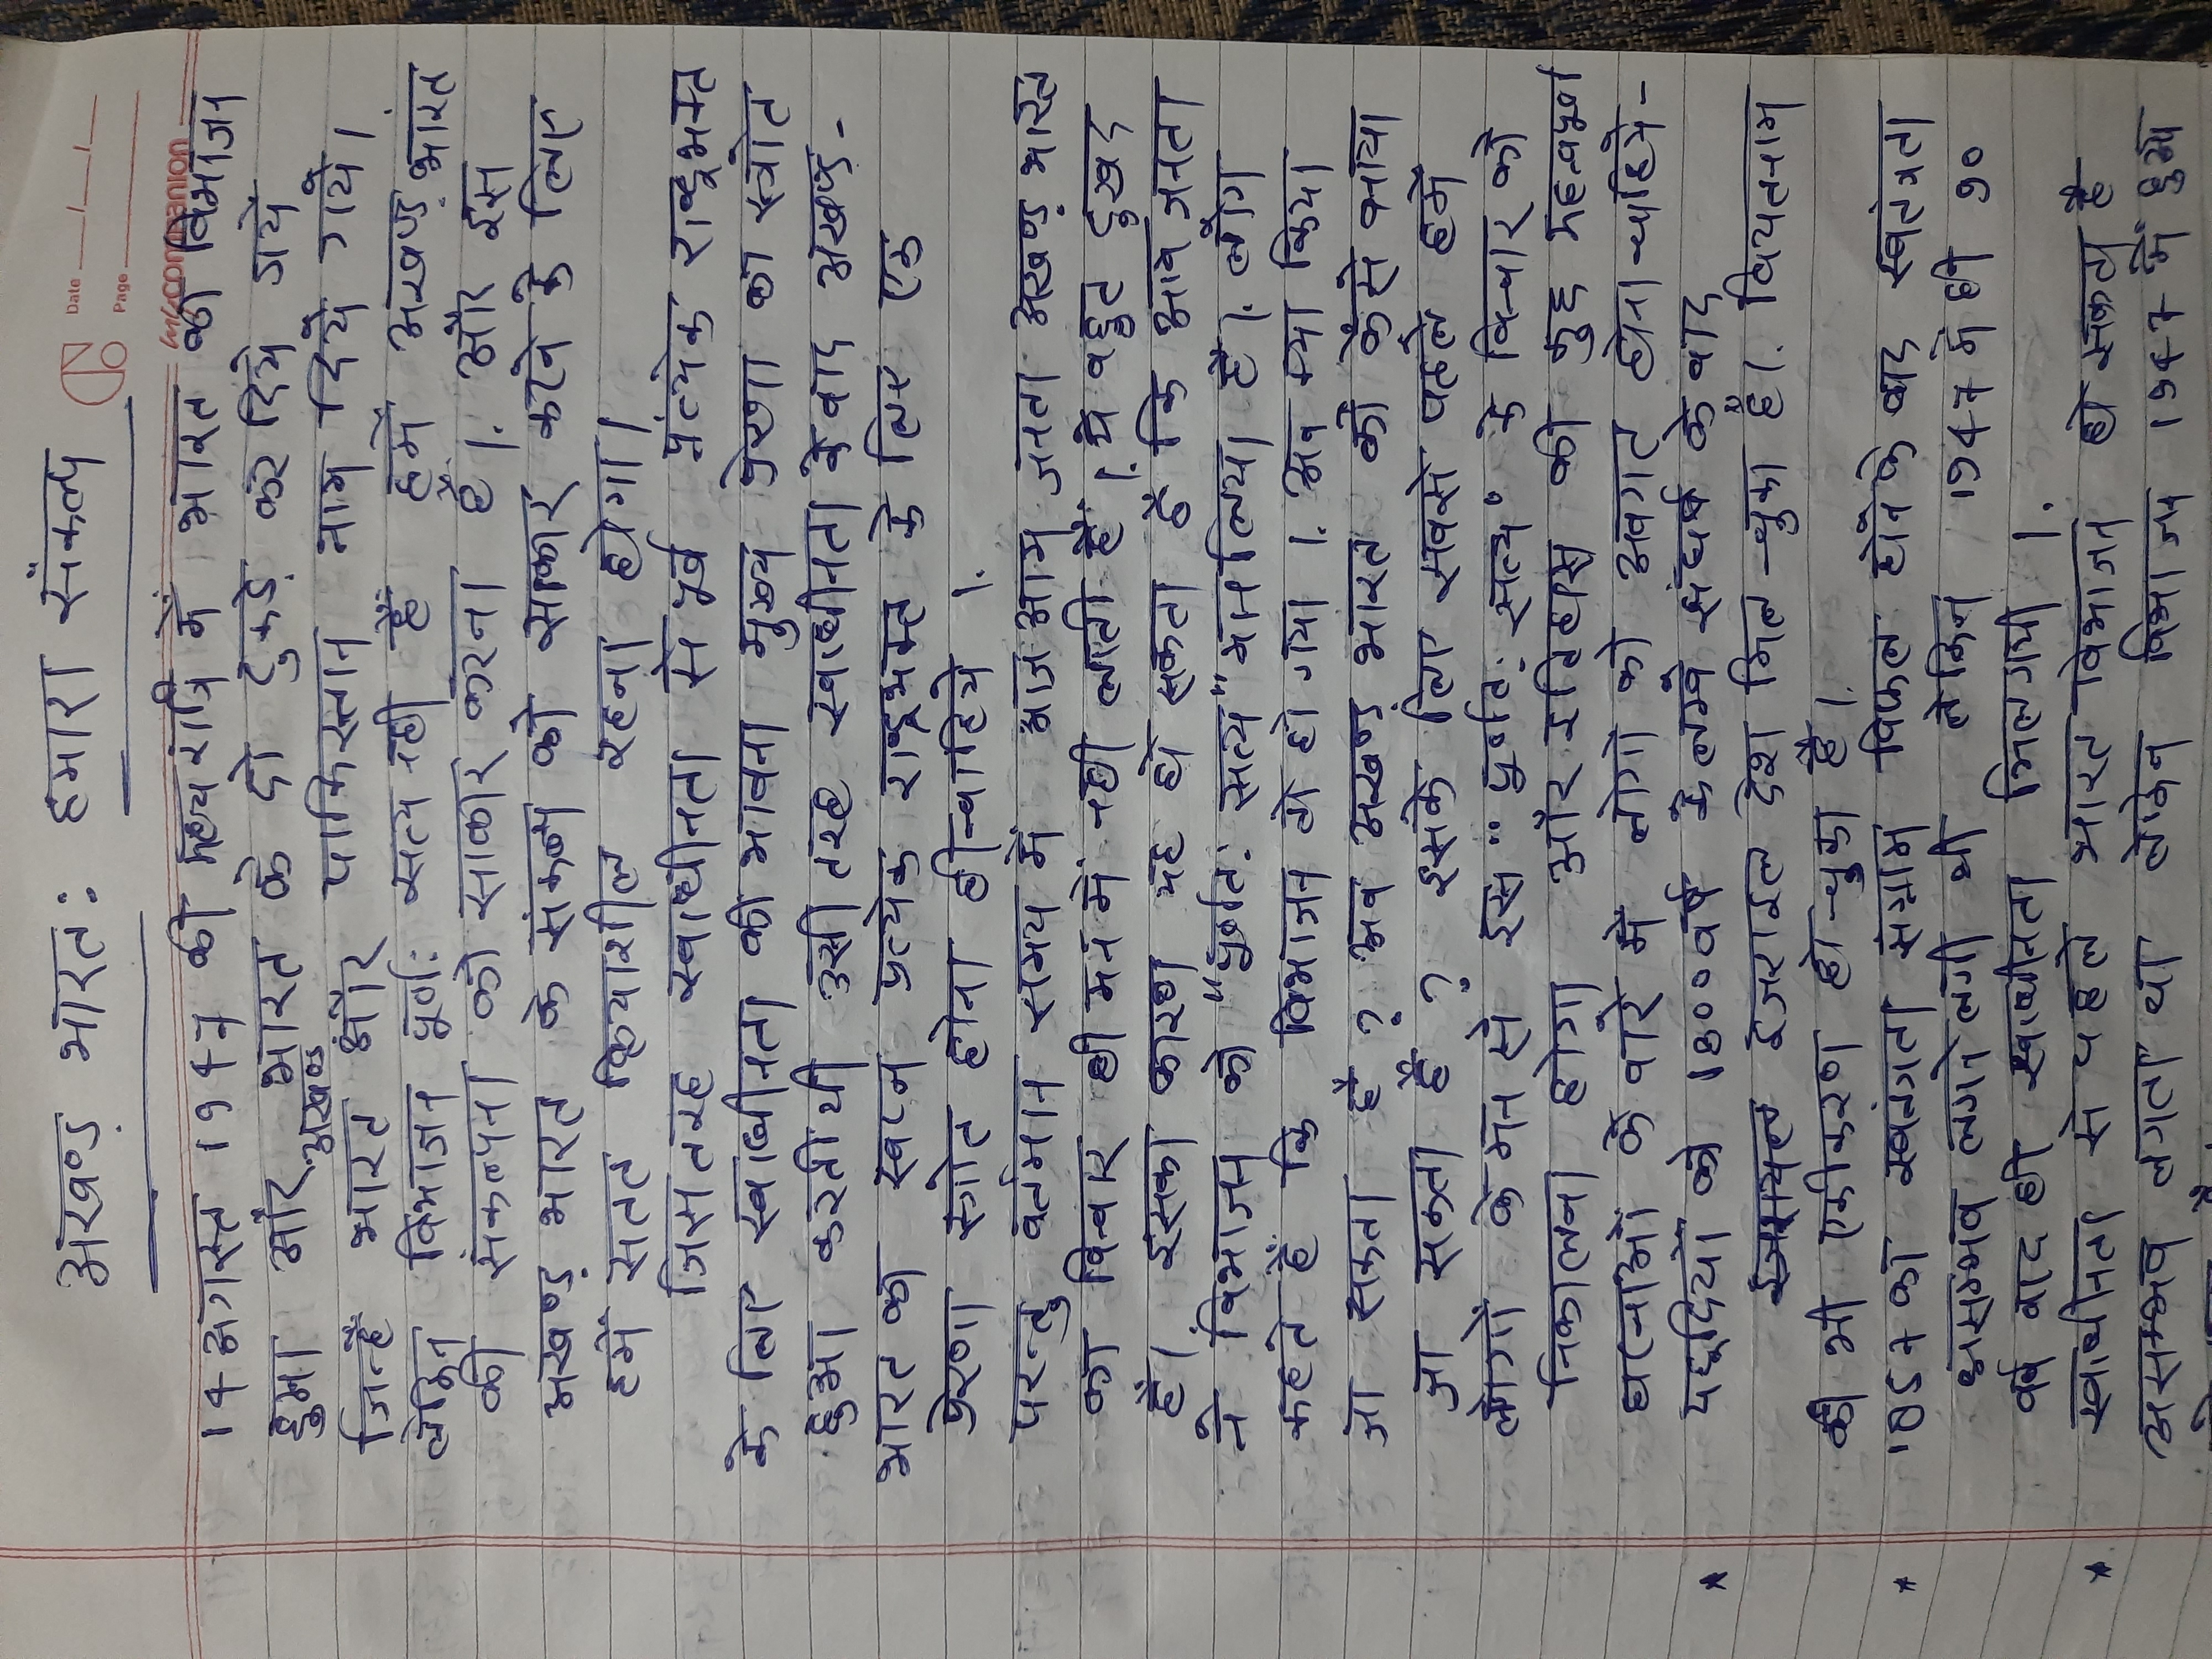 Date ___/___/___
Page ______
mycompanion
अखण्ड भारत: हमारा संकल्प
14 अगस्त 1947 की मध्यरात्रि में भारत का विभाजन
हुआ और भारत के दो टुकड़े कर दिये गये
अखण्ड
जिन्हें भारत और पाकिस्तान नाम दिये गये।
लेकिन विभाजन पूर्ण: सत्य नही है हमें अखण्ड भारत
की संकल्पना को साकार करना है। और इस
अखण्ड भारत के संकल्प को साकार करने के लिए
हमें सतत क्रियाशील रहना होगा।
जिस तरह स्वाधीनता से पूर्व प्रत्येक राष्ट्रभक्त
के लिए स्वाधीनता की भावना मुख्य प्रेरणा का स्त्रोत
हुआ करती थी उसी तरह स्वाधीनता के बाद अखण्ड-
भारत का स्वप्न प्रत्येक राष्ट्रभक्त के लिए एक
प्रेरणा स्त्रोत होना ही चाहिये।
परन्तु वर्तमान समय में आज आम जनता अखण्ड भारत
का विचार ही मन में नही लाती है। ये बहुत दुखद
है। इसका कारण यह हो सकता है कि आम जनता
ने विभाजन को "पूर्णत: सत्य" मान लिया है। लोग
कहते है कि विभाजन तो हो गया। अब क्या किया
जा सकता है? अब अखण्ड भारत को कैसे बनाया
जा सकता है? इसके लिए सबसे पहले हमें
लोगों के मन से इस "पूर्णत: सत्य" के विचार को
निकालना होगा और इतिहास की कुछ महत्वपूर्ण
घटनाओं के बारे में लोगो को अवगत होना चाहिये-
* यहूदियों को 1800 वर्ष के लम्बे संघर्ष के बाद
इजराइल देश मिल चुका है। वियतनाम
का भी एकीकरण हो चुका है।
* 1857 का स्वतंत्रता संग्राम विफल होने के बाद स्वतंत्रता
असम्भव लगने लगी थी लेकिन 1947 में ही 90
वर्ष बाद ही स्वाधीनता मिल गयी।
* स्वाधीनता से पहले भारत विभाजन हो सकता है
असम्भव लगता था लेकिन विभाजन 1947 में हुआ